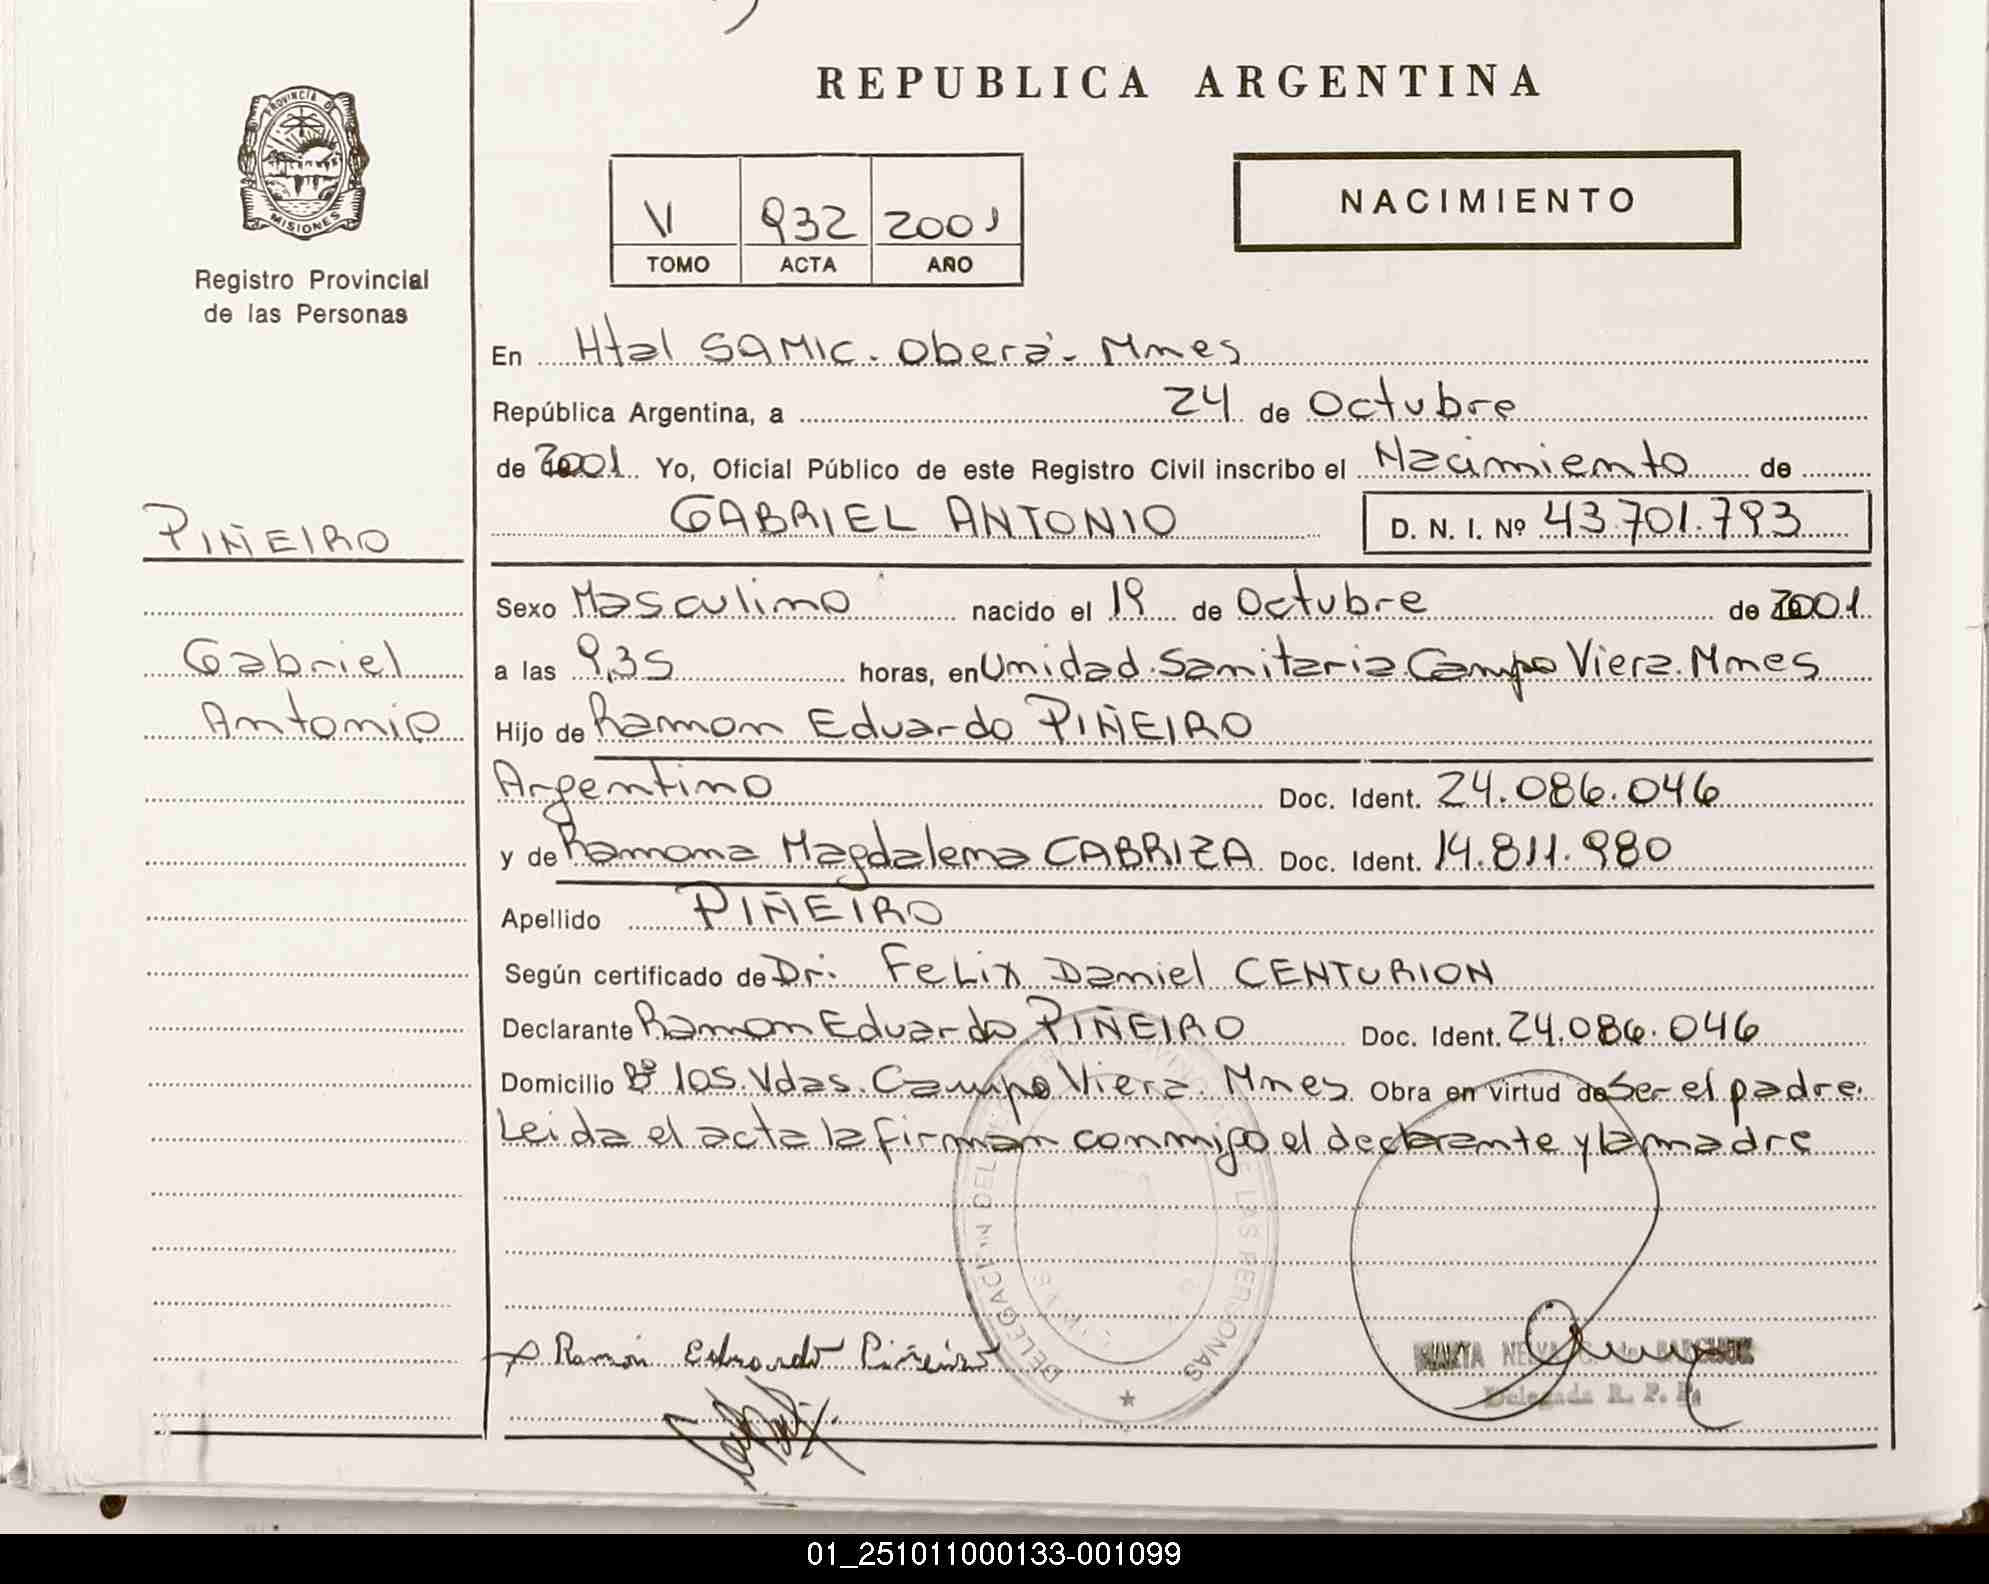 REPUBLICA ARGENTINA
PROVINCIA DE
MISIONES
Registro Provincial
de las Personas
V 932 2001
TOMO ACTA AÑO
NACIMIENTO
En Htal SAMIC. Oberá - Mnes
República Argentina, a 24 de Octubre
de 2001 Yo, Oficial Público de este Registro Civil inscribo el Nacimiento de
GABRIEL ANTONIO D. N. I. Nº 43.701.793
PIÑEIRO
Gabriel
Antonio
Sexo Masculino nacido el 19 de Octubre de 2001.
a las 9,35 horas, en Unidad Sanitaria Campo Viera. Mnes
Hijo de Ramon Eduardo PIÑEIRO
Argentino Doc. Ident. 24.086.046
y de Ramona Magdalena CABRIZA Doc. Ident. 14.811.980
Apellido PIÑEIRO
Según certificado de Dr. Felix Daniel CENTURION
Declarante Ramon Eduardo PIÑEIRO Doc. Ident. 24.086.046
Domicilio Bº los Vdas. Campo Viera. Mnes Obra en virtud de Ser el padre.
Leida el acta la firman conmigo el declarante y la madre
DELEGACION DEL LAS PERSONAS
Ramón Eduardo Piñeiro
MARTA
Delegada R. P. P.
01_251011000133-001099